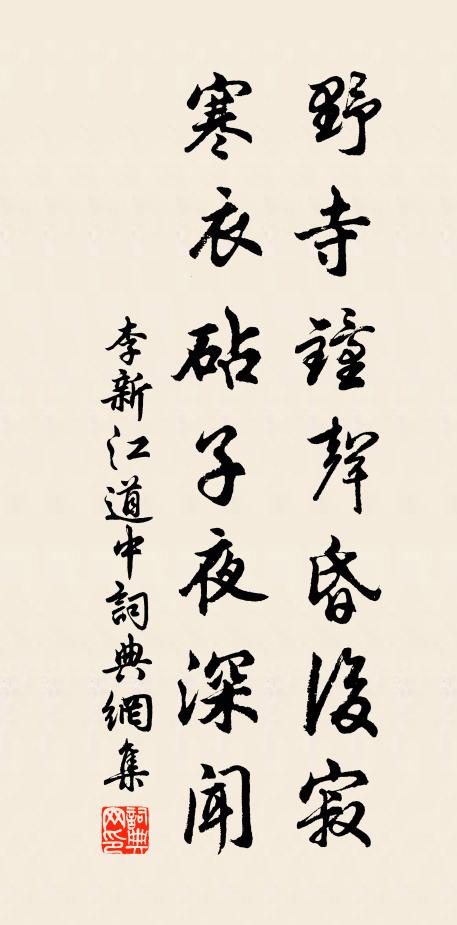 野寺鐘聲昏後寂
寒衣砧子夜深聞
李新江道中詞典網集
詞典
网印